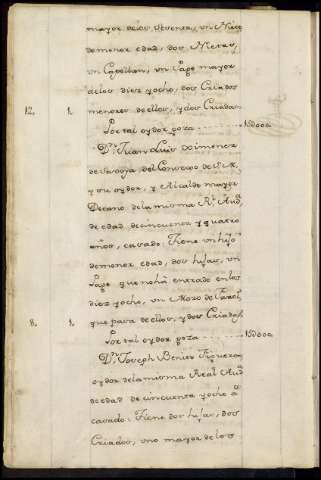 mayor de los treinta, un Nieto
de menor edad, dos Nietas,
un Capellan, un Page mayor
de los diez y ocho, dos Criados
menores de ellos, y dos Criadas
12. 1. Por tal oydor goza 15000
Dn. Juan Luis Ximenez
de Saboja del Consexo de S. M.
y su oydor, y Alcalde mayor
Decano de la misma Rl. Audª
de edad de cincuenta y quatro
años, casado: Tiene un hijo
de menor edad, dos hijas, un
Page que no ha entrado en los
diez y ocho, un Mozo de
que pasa de ellos, y dos Criadas.
8. 1. Por tal oydor goza 15000
Dn. Joseph Benito Figueroa,
oydor de la misma Real Audª
de edad de cincuenta y ocho aˢ
casado: Tiene dos hijas, dos
Criados, uno mayor de los